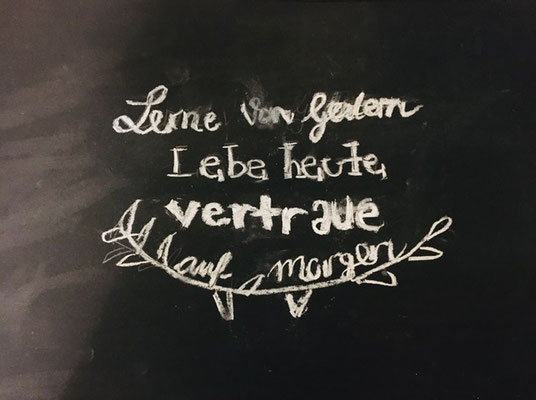 Lerne von Gestern
Lebe heute
vertraue
auf morgen